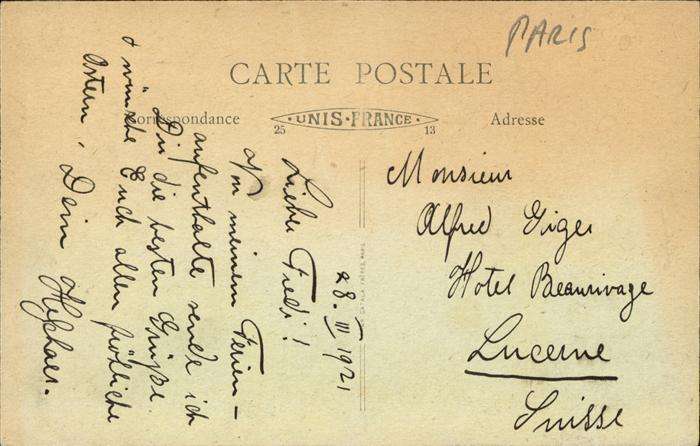 PARIS
CARTE POSTALE
Correspondance
UNIS-FRANCE
25
13
Adresse
28. III 1921
Lieber Fredi!
Von meinem Ferien-
aufenthalte sende ich
Dir die besten Grüsse
& wünsche Euch allen fröhliche
Ostern. Dein
Monsieur
Alfred Giger
Hotel Beaurivage
Lucerne
Suisse